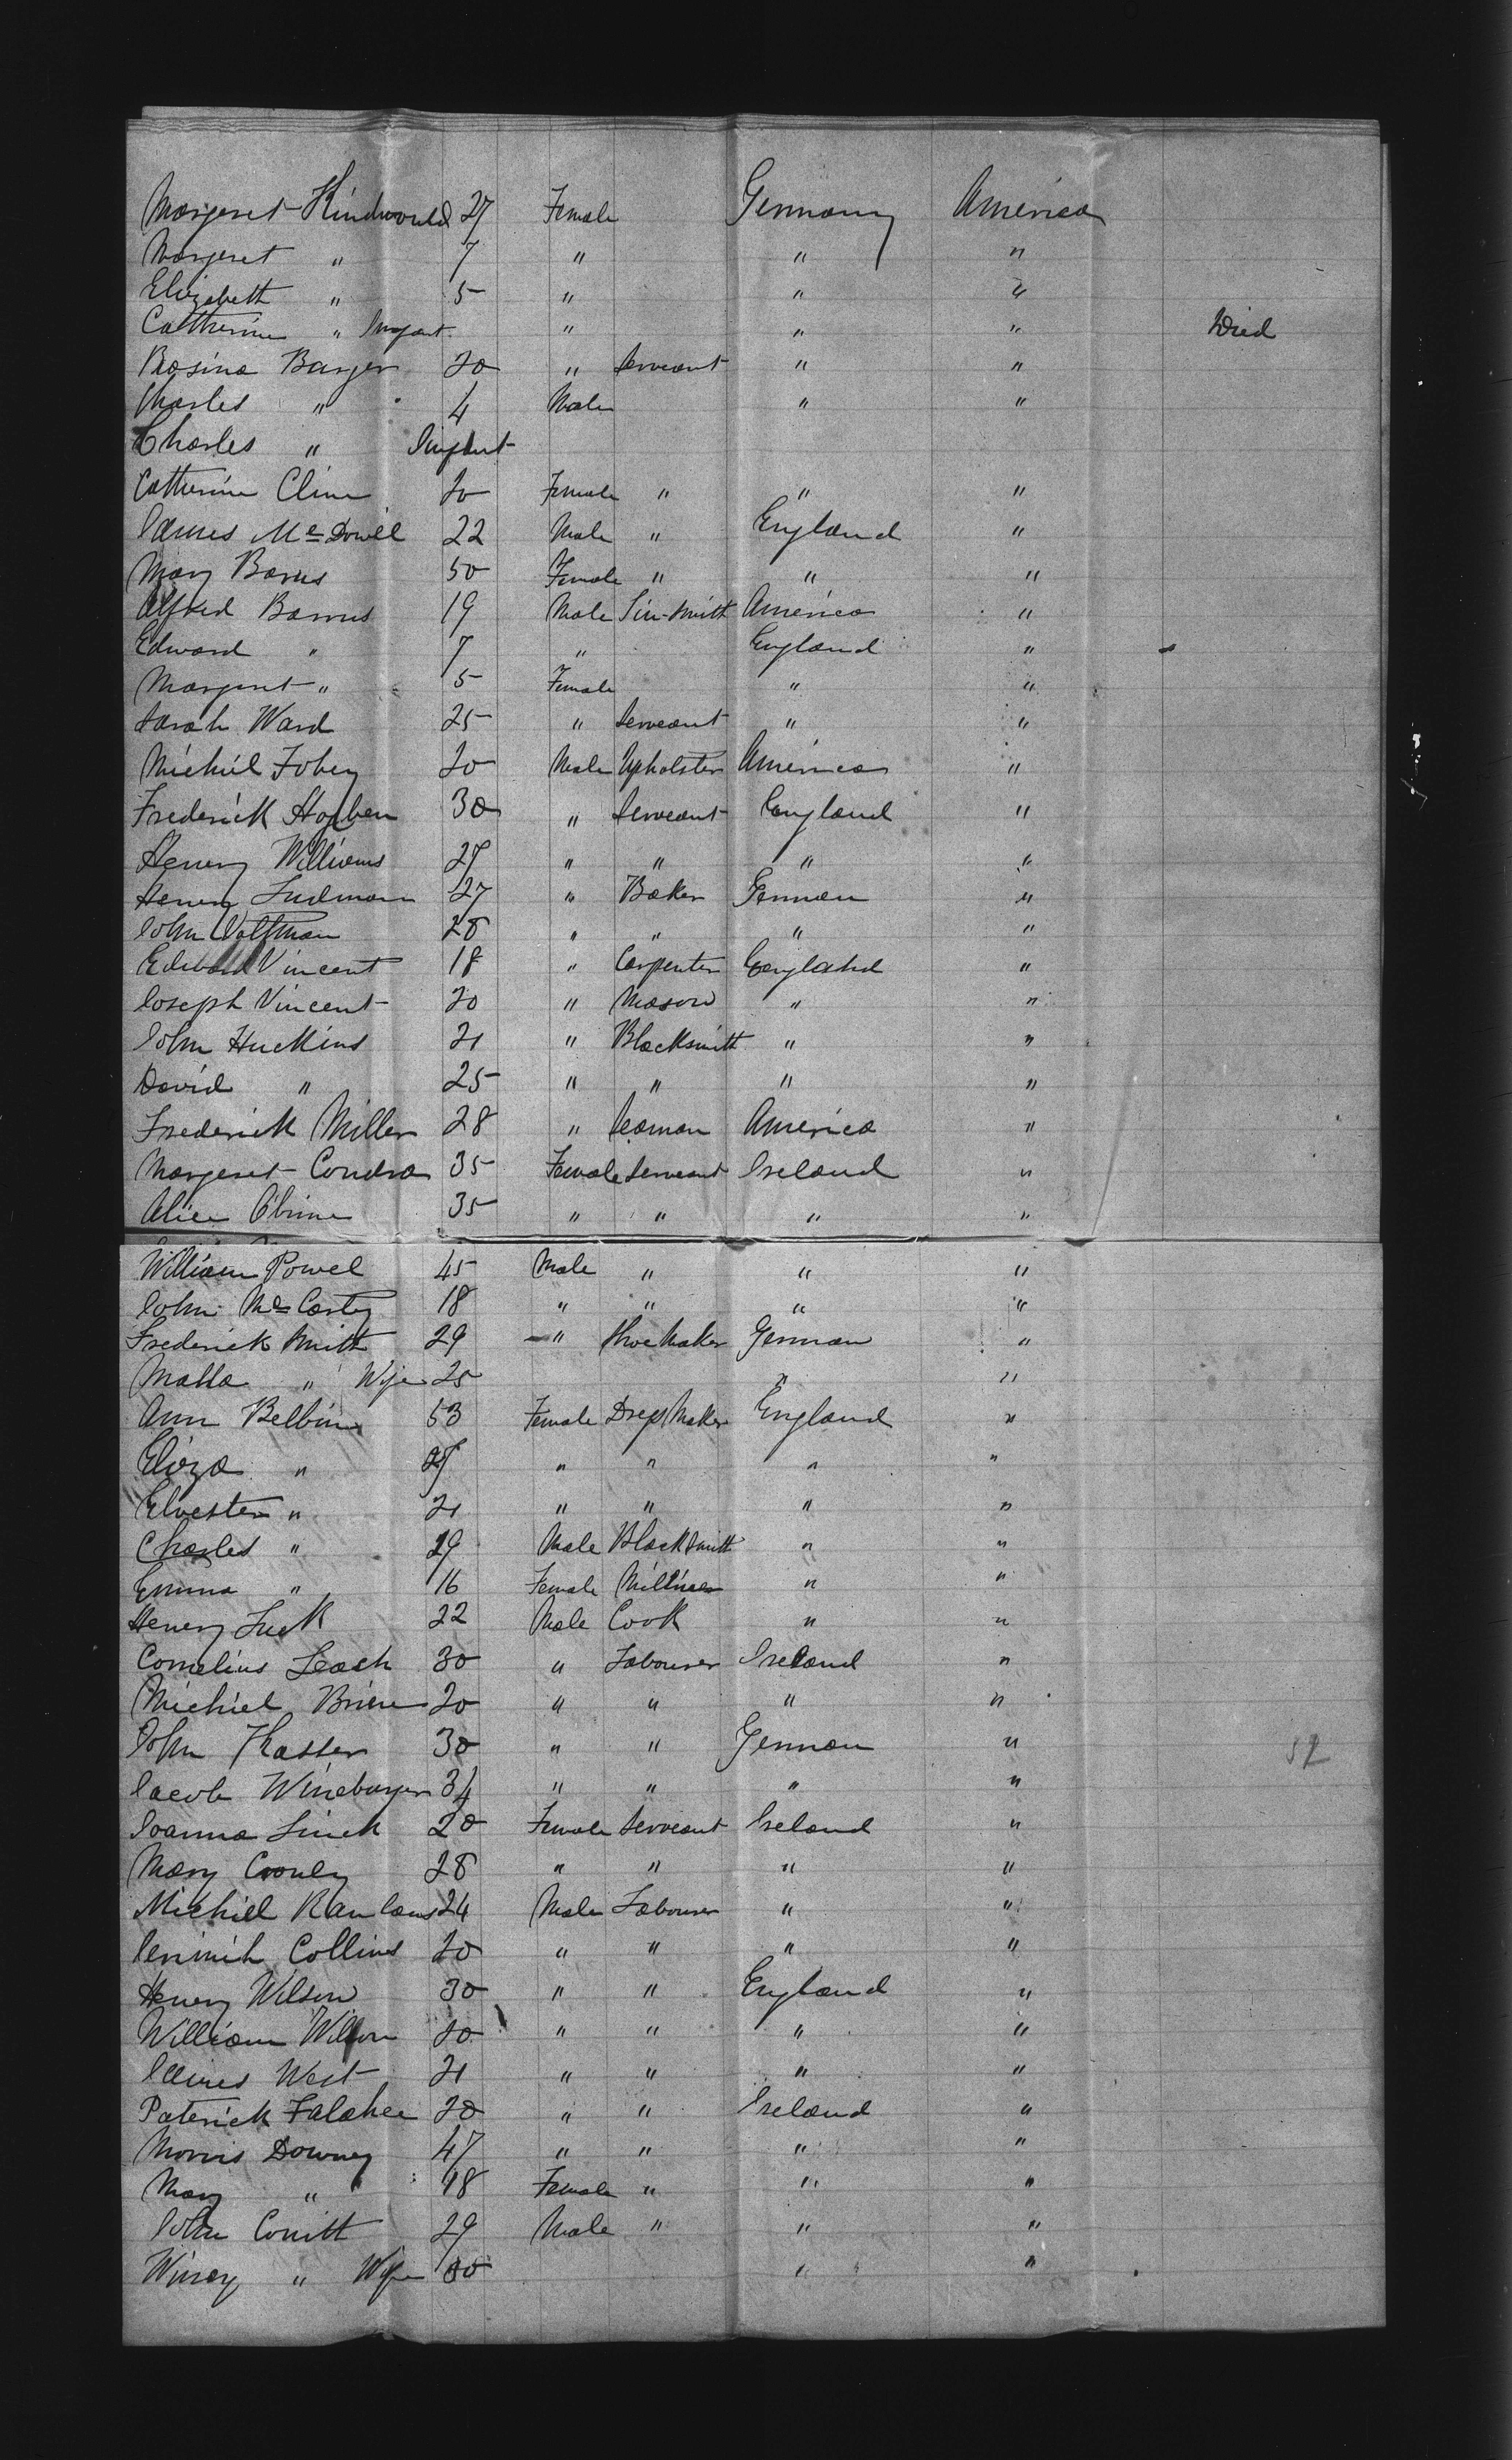 Margeret Hindwould 27 Female Germany America
Margeret " 7 " " "
Elizabeth " 5 " " "
Catherine " Infant " " " Died
Rosina Barger 20 " Serveant " "
Charles " 4 Male " "
Charles " Infant
Catherine Cline 20 Female " " "
James Mc Dowell 22 Male " England "
Mary Barns 50 Female " " "
Alfred Barnes 19 Male Tin-Smith America "
Edward " 7 " England "
Margeret " 5 Female " "
Sarah Ward 25 " Serveant " "
Michiel Fohey 20 Male Upholster America "
Frederick Hogben 30 " Serveant England "
Henery Williams 27 " " " "
Henery Ludman 27 " Baker German "
John Voltman 28 " " " "
Edward Vincent 18 " Carpenter England "
Joseph Vincent 20 " Mason " "
John Huckins 21 " Blacksmith " "
David " 25 " " " "
Frederick Miller 28 " Seaman America "
Margeret Condra 35 Female Serveant Ireland "
Alice O'brine 35 " " " "
William Powel 45 Male " " "
John Mc Carty 18 " " " "
Frederick Smith 29 " Shoe Maker German "
Malla " Wife 25 " "
Ann Belbin 53 Female Dress Maker England "
Eliza " 27 " " " "
Elvester " 21 " " " "
Charles " 29 Male Blacksmith " "
Emma " 16 Female Milliner " "
Henery Luck 22 Male Cook " "
Cornelius Leach 30 " Labourer Ireland "
Michiel Brine 20 " " " "
John Kasler 30 " " German "
Jacob Wineburger 34 " " " "
Joanna Linch 20 Female Serveant Ireland "
Mary Cronley 28 " " " "
Michiel Rawlans 24 Male Labourer " "
Jerimih Collins 20 " " " "
Henery Wilson 30 " " England "
William Wilson 20 " " " "
James West 21 " " " "
Paterick Falahee 20 " " Ireland "
Morris Downey 47 " " " "
Mary " 18 Female " " "
John Conitt 29 Male " " "
Winey " Wife 30 " "